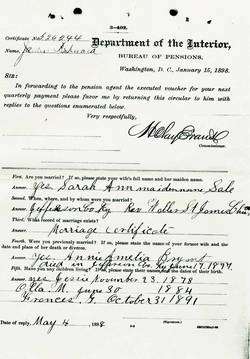 3-402.
Certificate No.
Name,
Department of the Interior,
BUREAU OF PENSIONS,
Washington, D. C., January 15, 1898.
SIR:
In forwarding to the pension agent the executed voucher for your next
quarterly payment please favor me by returning this circular to him with
replies to the questions enumerated below.
Very respectfully,
Commissioner.
First. Are you married? If so, please state your wife's full name and her maiden name.
Answer. Yes Sarah Ann maiden name Sale
Second. When, where, and by whom were you married?
Answer. Jefferson Co Ky Rev
Third. What record of marriage exists?
Answer. Marriage Certificate
Fourth. Were you previously married? If so, please state the name of your former wife and the
date and place of her death or divorce.
Answer. Yes Annie Amelia Bryant
died in Jefferson Co Ky
Fifth. Have you any children living? If so, please state their names and the dates of their birth.
Answer. yes Jessie November 23, 1878
M. June 30 1884
Frances G. October 31 1891
Date of reply, May 4, 1898